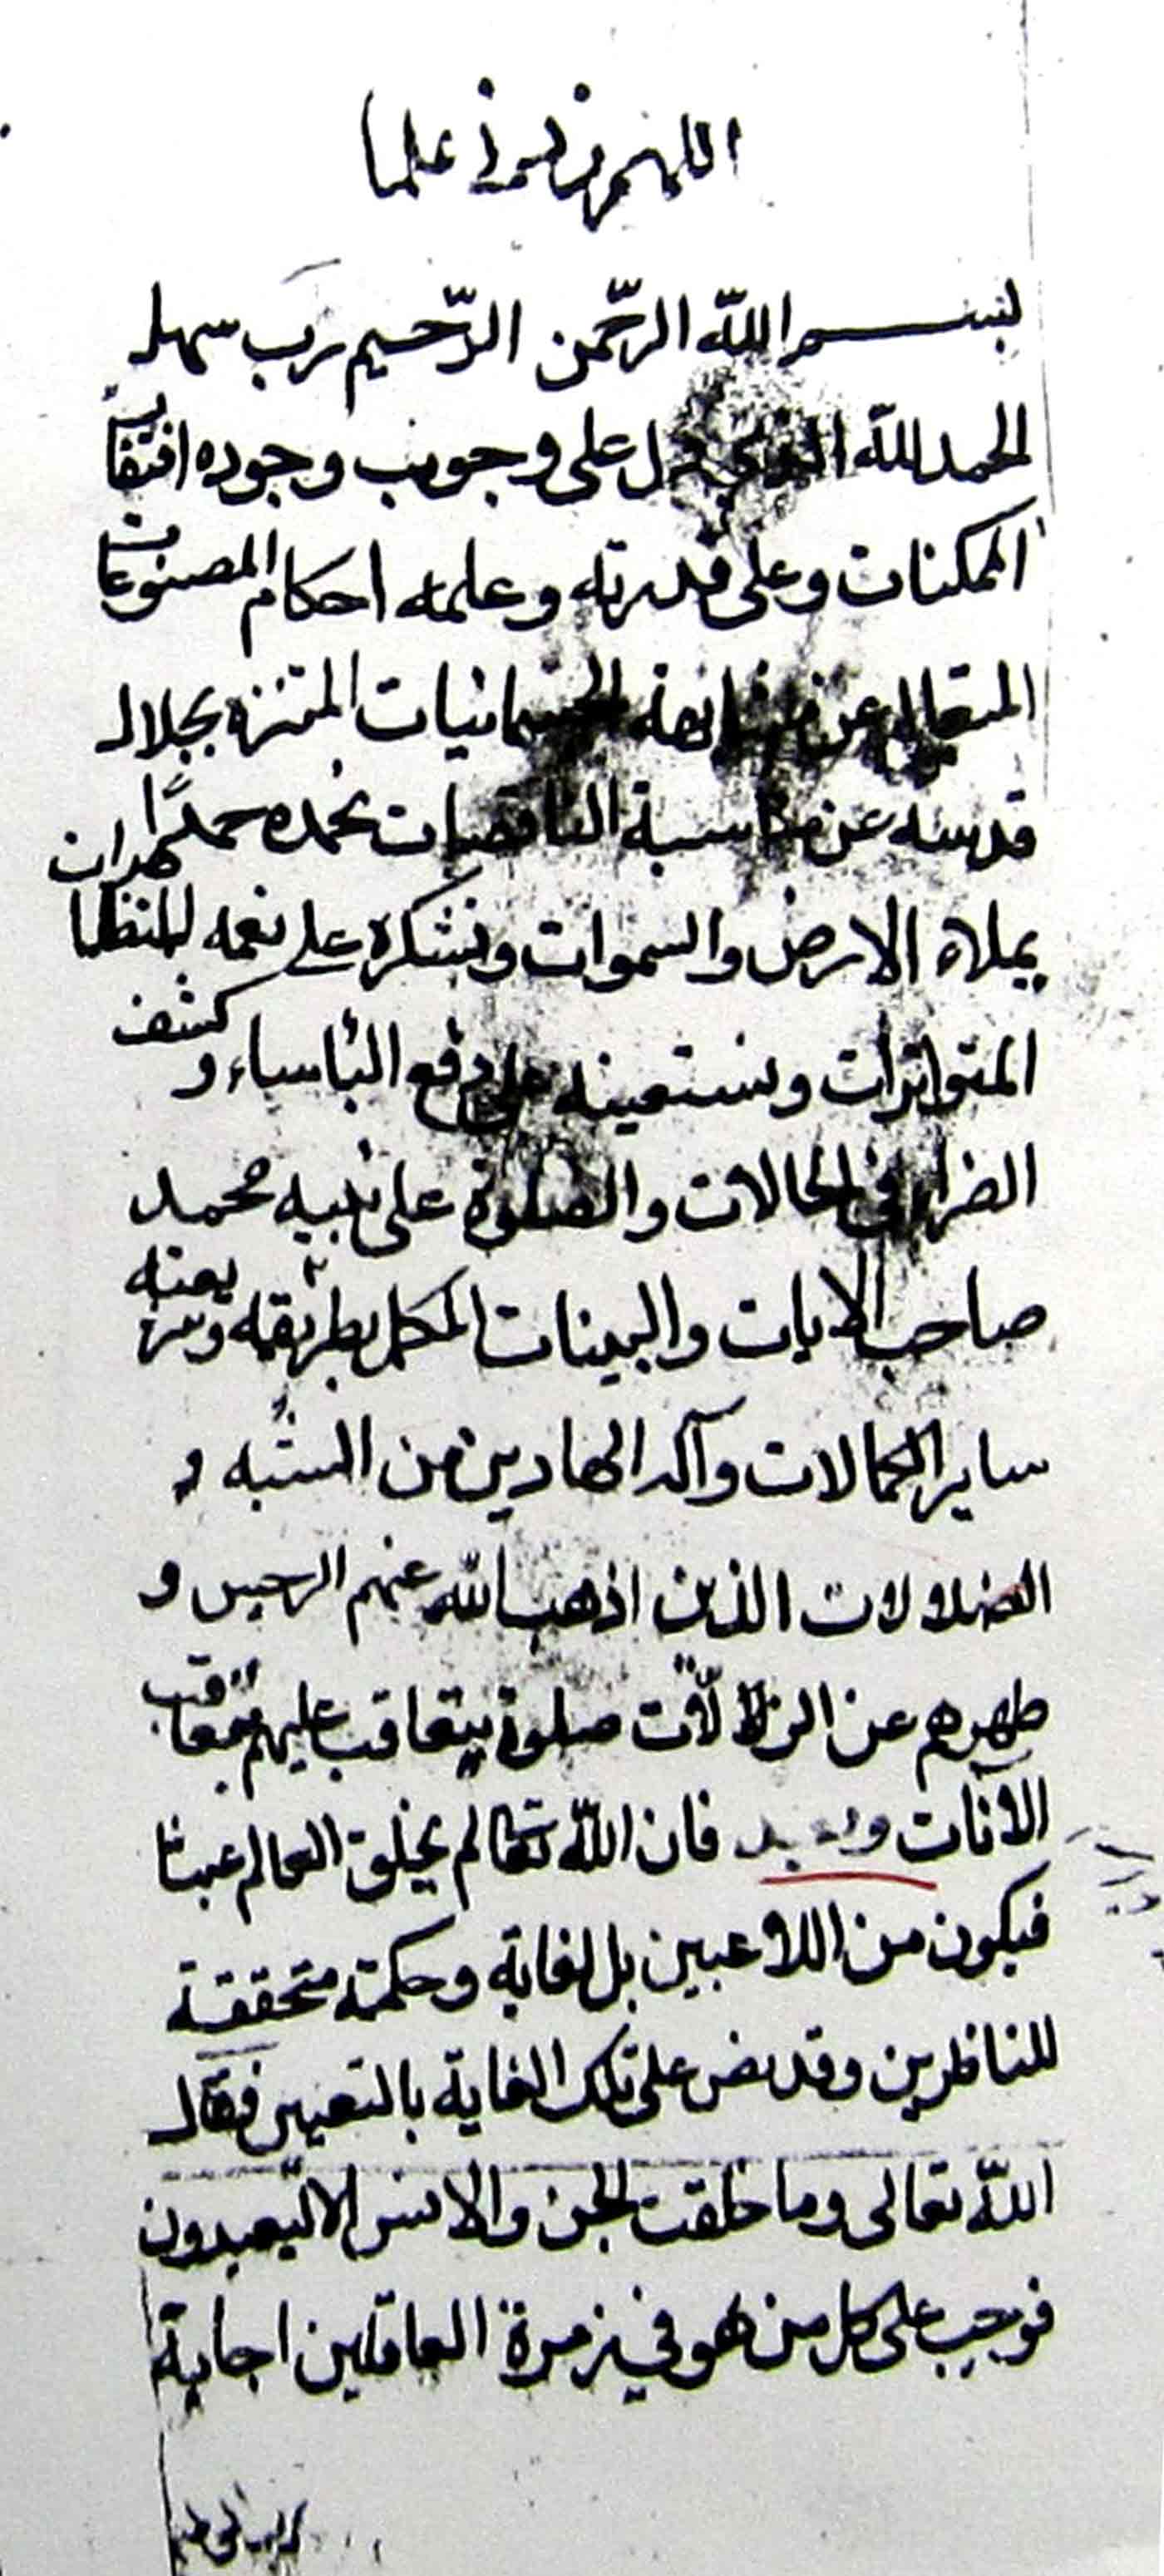 اللهم زدنی علما
بسم اللّه الرّحمن الرّحيم رب سهل
الحمد للّه الذي دل على وجوب وجوده افتقار
الممكنات وعلى قدرته وعلمه احكام المصنوعات
المتعالى عن مشابهة الجسمانيات المتنزه بجلال
قدسه عن مناسبة الناقصات نحمده حمدًا
يملاه الارض والسموات ونشكره على نعمه المتظاهرات
المتواترات ونستعينه على دفع البأساء وكشف
الضراء في الحالات والصلوة على نبيه محمد
صاحب الايات والبينات المكمل بطريقته وشريعته
ساير الكمالات وآله الهادين من الشُّبه و
الضلالات الذين اذهب اللّه عنهم الرجس و
طهرهم عن الزلّات صلوة يتعاقب عليهم بتعاقب
الآنات وبعد فان اللّه تعا لم يخلق العالم عبثا
فيكون من اللاعبين بل لغاية وحكمة متحققة
للناظرين وقد نص على تلك الغاية بالتعيين فقال
اللّه تعالى وما خلقت الجن والانس الا ليعبدون
فوجب على كل من هو في زمرة العاقلين اجابة